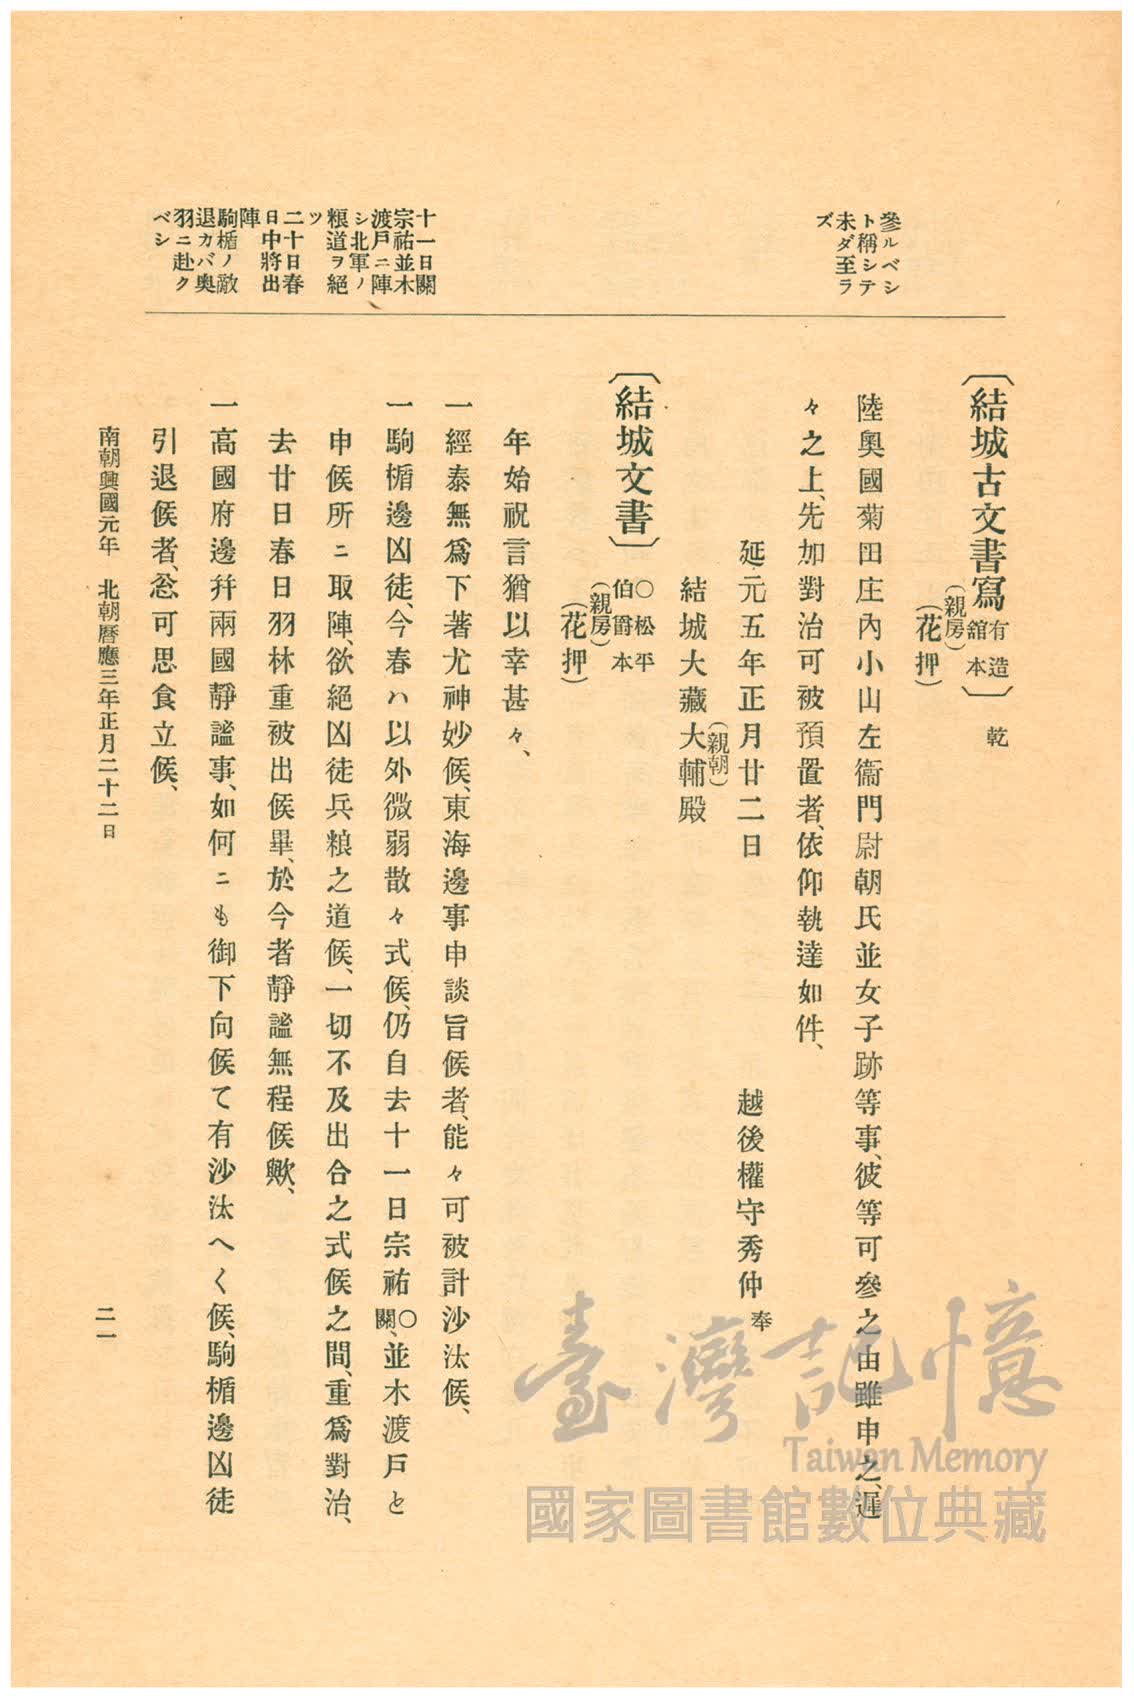 參ルベシ
ト稱シテ
未ダ至ラ
ズ
十一日關
宗祐並木
渡戶ニ陣
シ北軍ノ
粮道ヲ絕
ツ
二十日春
日中將出
陣
駒楯ノ敵
退カバ奧
羽ニ赴ク
ベシ
〔結城古文書寫 有造
舘本〕 乾
(親房)
(花押)
陸奧國菊田庄內小山左衞門尉朝氏並女子跡等事、彼等可參之由雖申之、遲
々之上、先加對治可被預置者、依仰執達如件、
延元五年正月廿二日 越後權守秀仲奉
(親朝)
結城大藏大輔殿
〔結城文書〕 ○松平
伯爵本
(親房)
(花押)
年始祝言猶以幸甚々、
一經泰無爲下著尤神妙候、東海邊事申談旨候者、能々可被計沙汰候、
一駒楯邊凶徒、今春ハ以外微弱散々式候、仍自去十一日宗祐○
關、並木渡戶と
申候所ニ取陣、欲絕凶徒兵粮之道候、一切不及出合之式候之間、重爲對治、
去廿日春日羽林重被出候畢、於今者靜謐無程候歟、
一高國府邊幷兩國靜謐事、如何ニも御下向候て有沙汰へく候、駒楯邊凶徒
引退候者、忩可思食立候、
南朝興國元年 北朝曆應三年正月二十二日
二一
臺灣記憶
Taiwan Memory
國家圖書館數位典藏